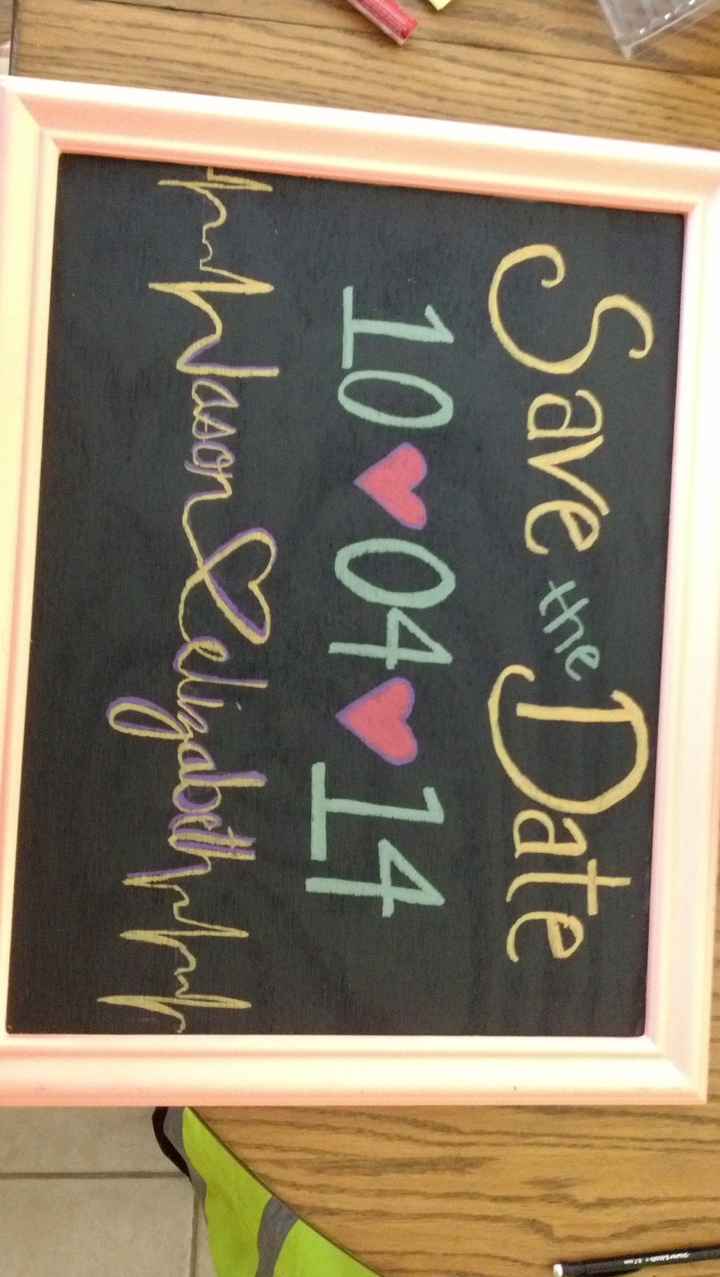 Save the Date
10 ♥ 04 ♥ 14
Wason ♥ elizabeth